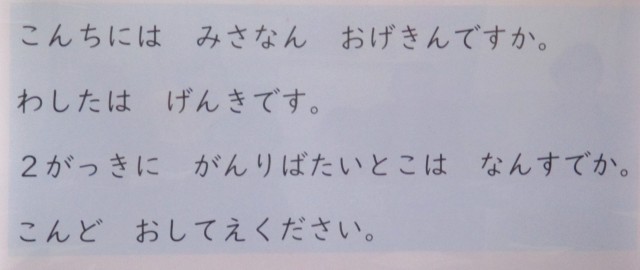 こんちには　みさなん　おげきんですか。
わしたは　げんきです。
２がっきに　がんりばたいとこは　なんすでか。
こんど　おしてえください。